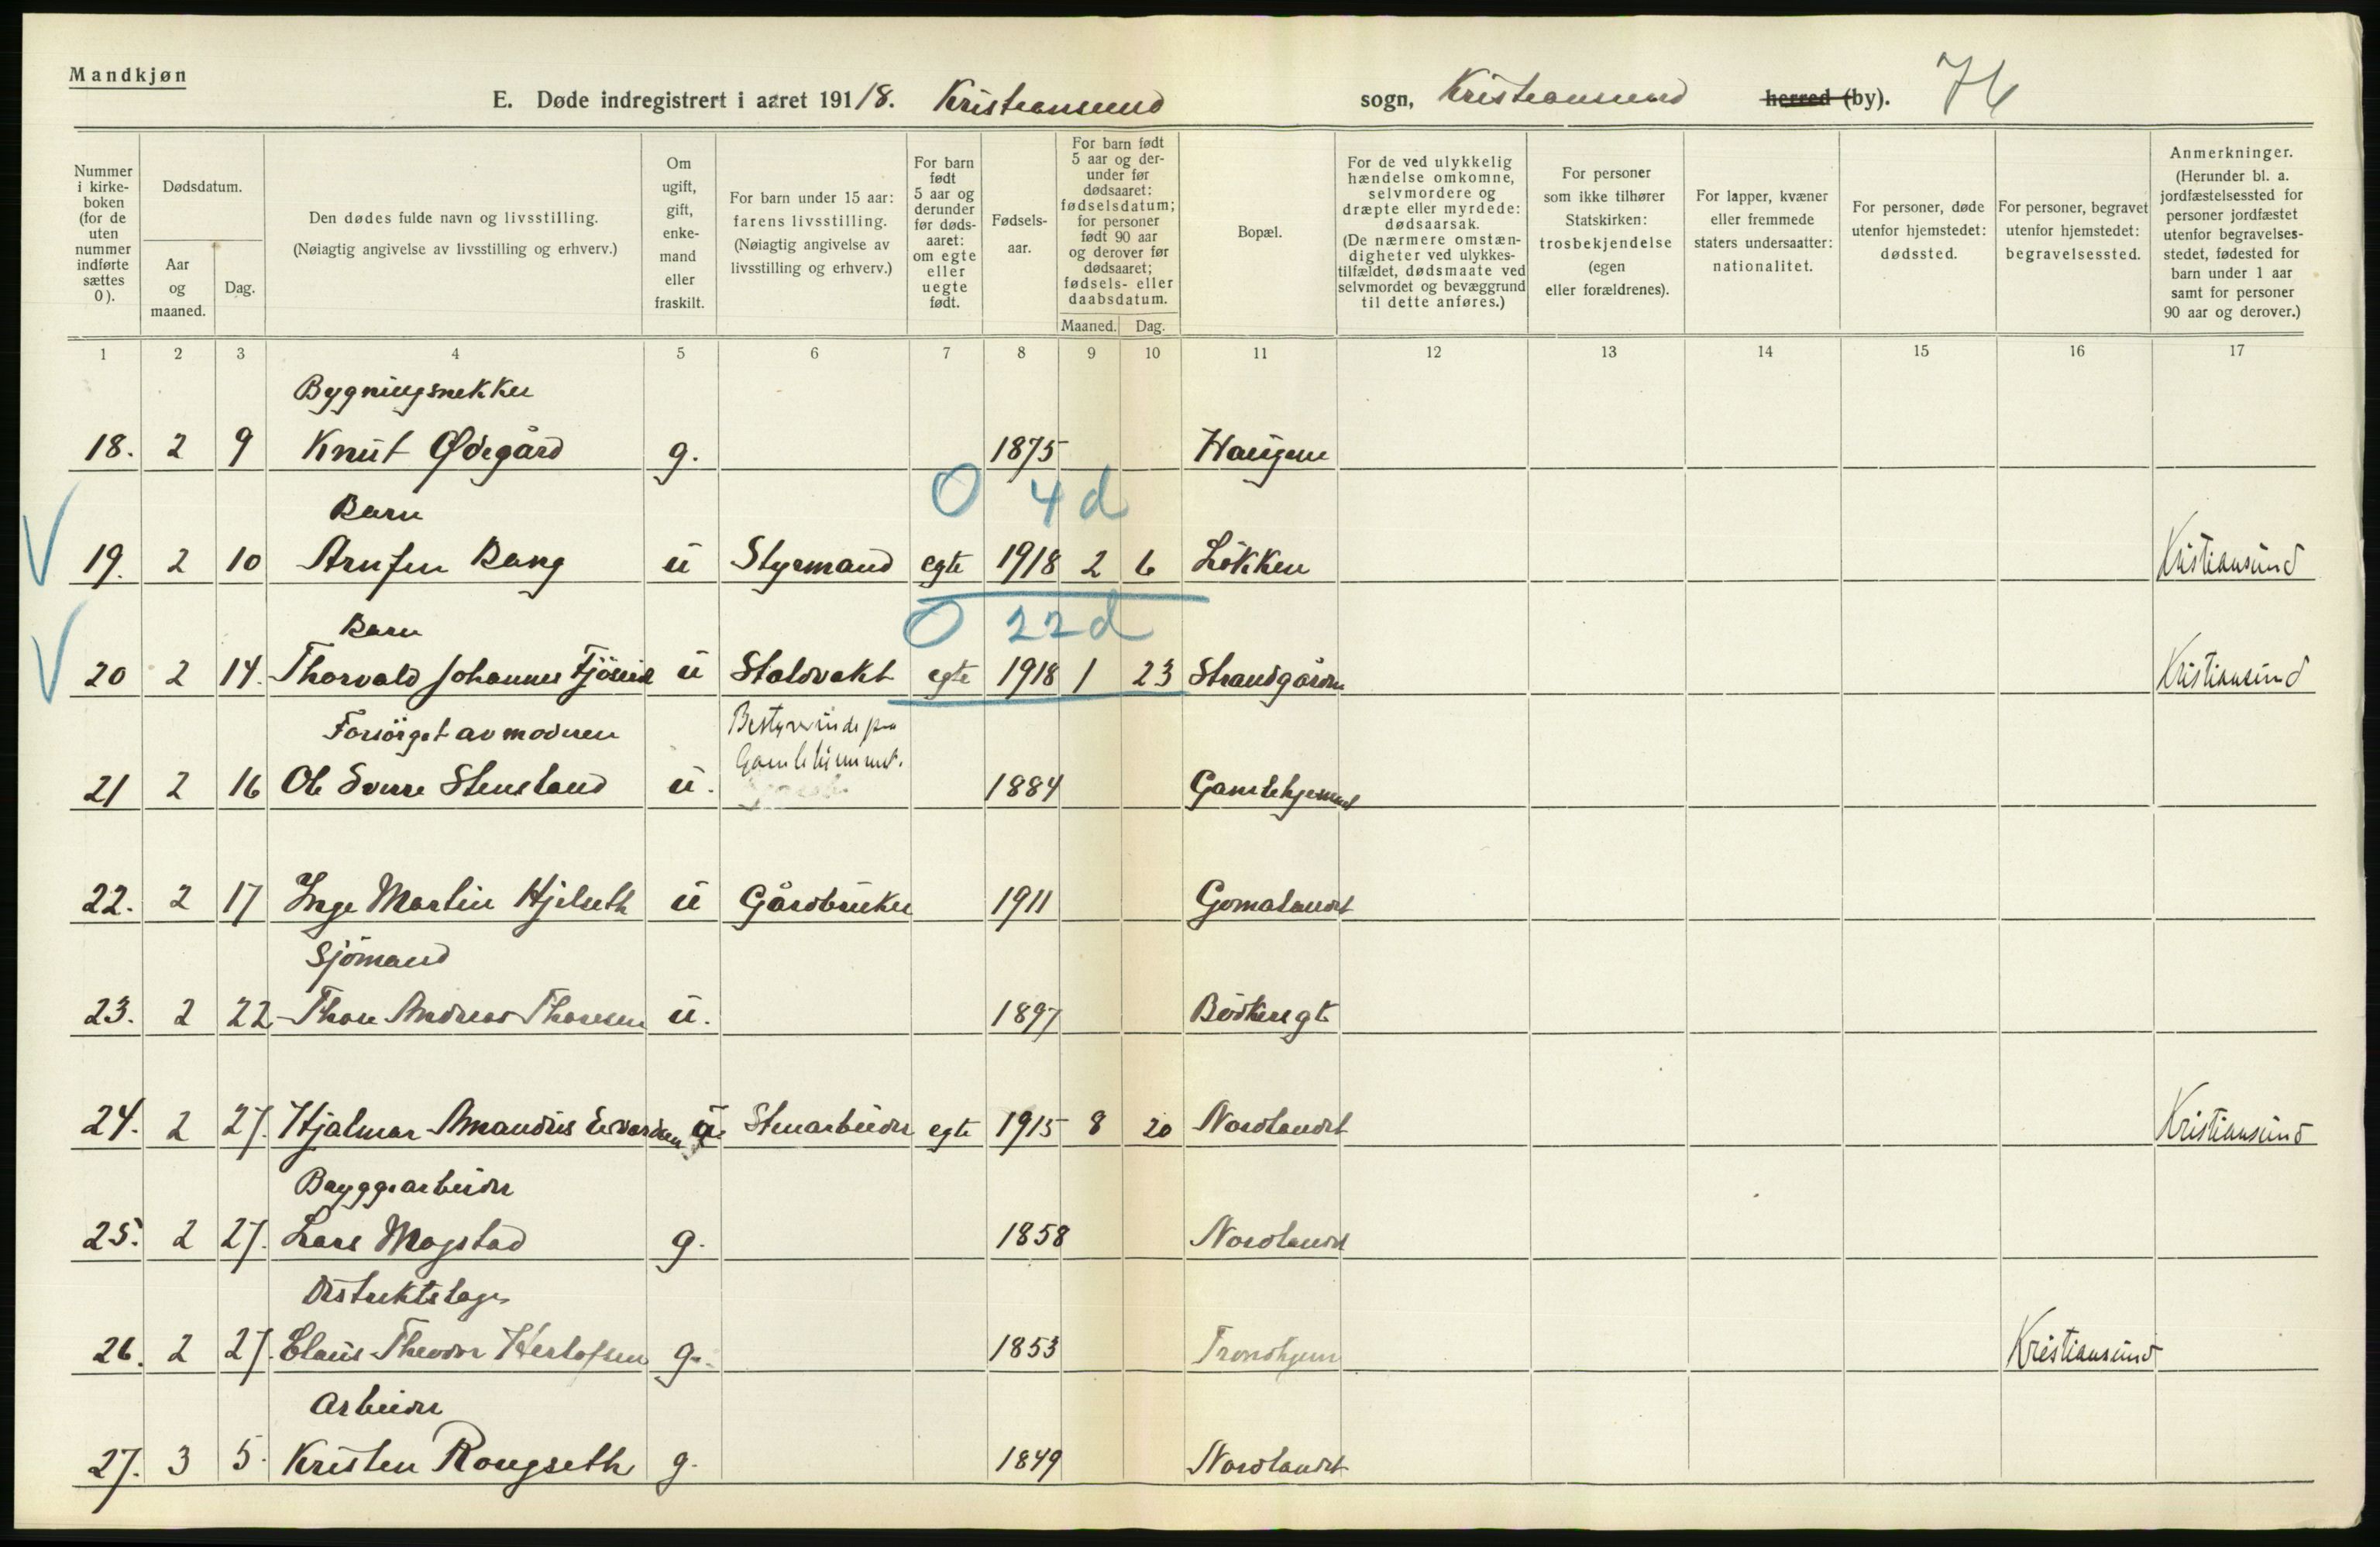 Mandkjøn
E. Døde indregistrert i aaret 1918. Kristiansund sogn, Kristiansund herred (by). 76
Nummer i kirke-boken (for de uten nummer indførte sættes 0).
Dødsdatum.
Aar og maaned.
Dag.
Den dødes fulde navn og livsstilling.
(Nøiagtig angivelse av livsstilling og erhverv.)
Om ugift, gift, enke-mand eller fraskilt.
For barn under 15 aar: farens livsstilling.
(Nøiagtig angivelse av livsstilling og erhverv.)
For barn født 5 aar og derunder før døds-aaret: om egte eller uegte født.
Fødsels-aar.
For barn født 5 aar og der-under før dødsaaret: fødselsdatum; for personer født 90 aar og derover før dødsaaret; fødsels- eller daabsdatum.
Maaned.
Dag.
Bopæl.
For de ved ulykkelig hændelse omkomne, selvmordere og dræpte eller myrdede: dødsaarsak.
(De nærmere omstæn-digheter ved ulykkes-tilfældet, dødsmaate ved selvmordet og bevæggrund til dette anføres.)
For personer som ikke tilhører Statskirken: trosbekjendelse (egen eller forældrenes).
For lapper, kvæner eller fremmede staters undersaatter: nationalitet.
For personer, døde utenfor hjemstedet: dødssted.
For personer, begravet utenfor hjemstedet: begravelsessted.
Anmerkninger.
(Herunder bl. a. jordfæstelsessted for personer jordfæstet utenfor begravelses-stedet, fødested for barn under 1 aar samt for personer 90 aar og derover.)
1 2 3 4 5 6 7 8 9 10 11 12 13 14 15 16 17
Bygningsnekker
18. 2 9 Knut Ødegård g. 1875 Haugen
0 4 d
Barn
19. 2 10 Arnfin Bang u Styrmand egte 1918 2 6 Løkken Kristiansund
0 22 d
Barn
20 2 14. Thorvald Johannes u Staldvakt egte 1918 1 23 Strandgården Kristiansund
Forsörget av moderen Bestyrerinde paa
Gamlehjemmet.
21 2 16 Ole Sverre Stensland u. 1884 Gamlehjemmet
22. 2 17 Inge Martin Hjelseth u Gårdbruker 1911 Gomalandet
Sjömand
23. 2 22 Thore Andreas Thoresen u. 1897 Bödkergt
24. 2 27. Hjalmar Amandus u Stenarbeider egte 1915 8 20 Nordlandet Kristiansund
Bryggearbeider
25. 2 27. Lars Magstad g. 1858 Nordlandet
Distriktslæge
26. 2 27. Claus Theodor Herlofsen g. 1853 Trondhjem Kristiansund
Arbeider
27. 3 5. Kristen Rongseth g. 1849 Nordlandet